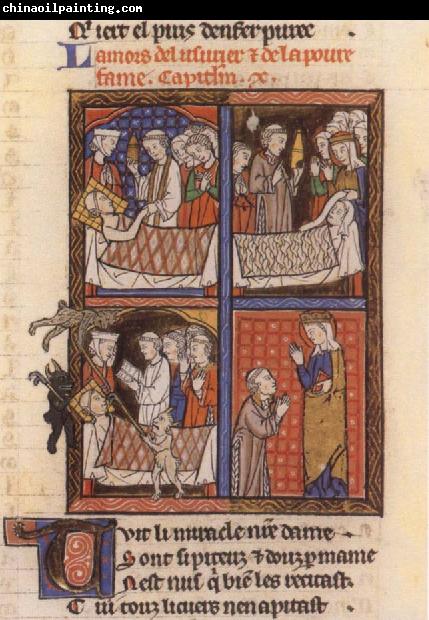 chinaoilpainting.com
iert el puis denfer
La mors del usurier ⁊ de la poure
fame. Capitlm. x.
Tuit li miracle nr̃e dame
Sont si piteuz ⁊ douz p mame
N est nus q̃ biẽ les recitast
C ui touz licuers nen apitast